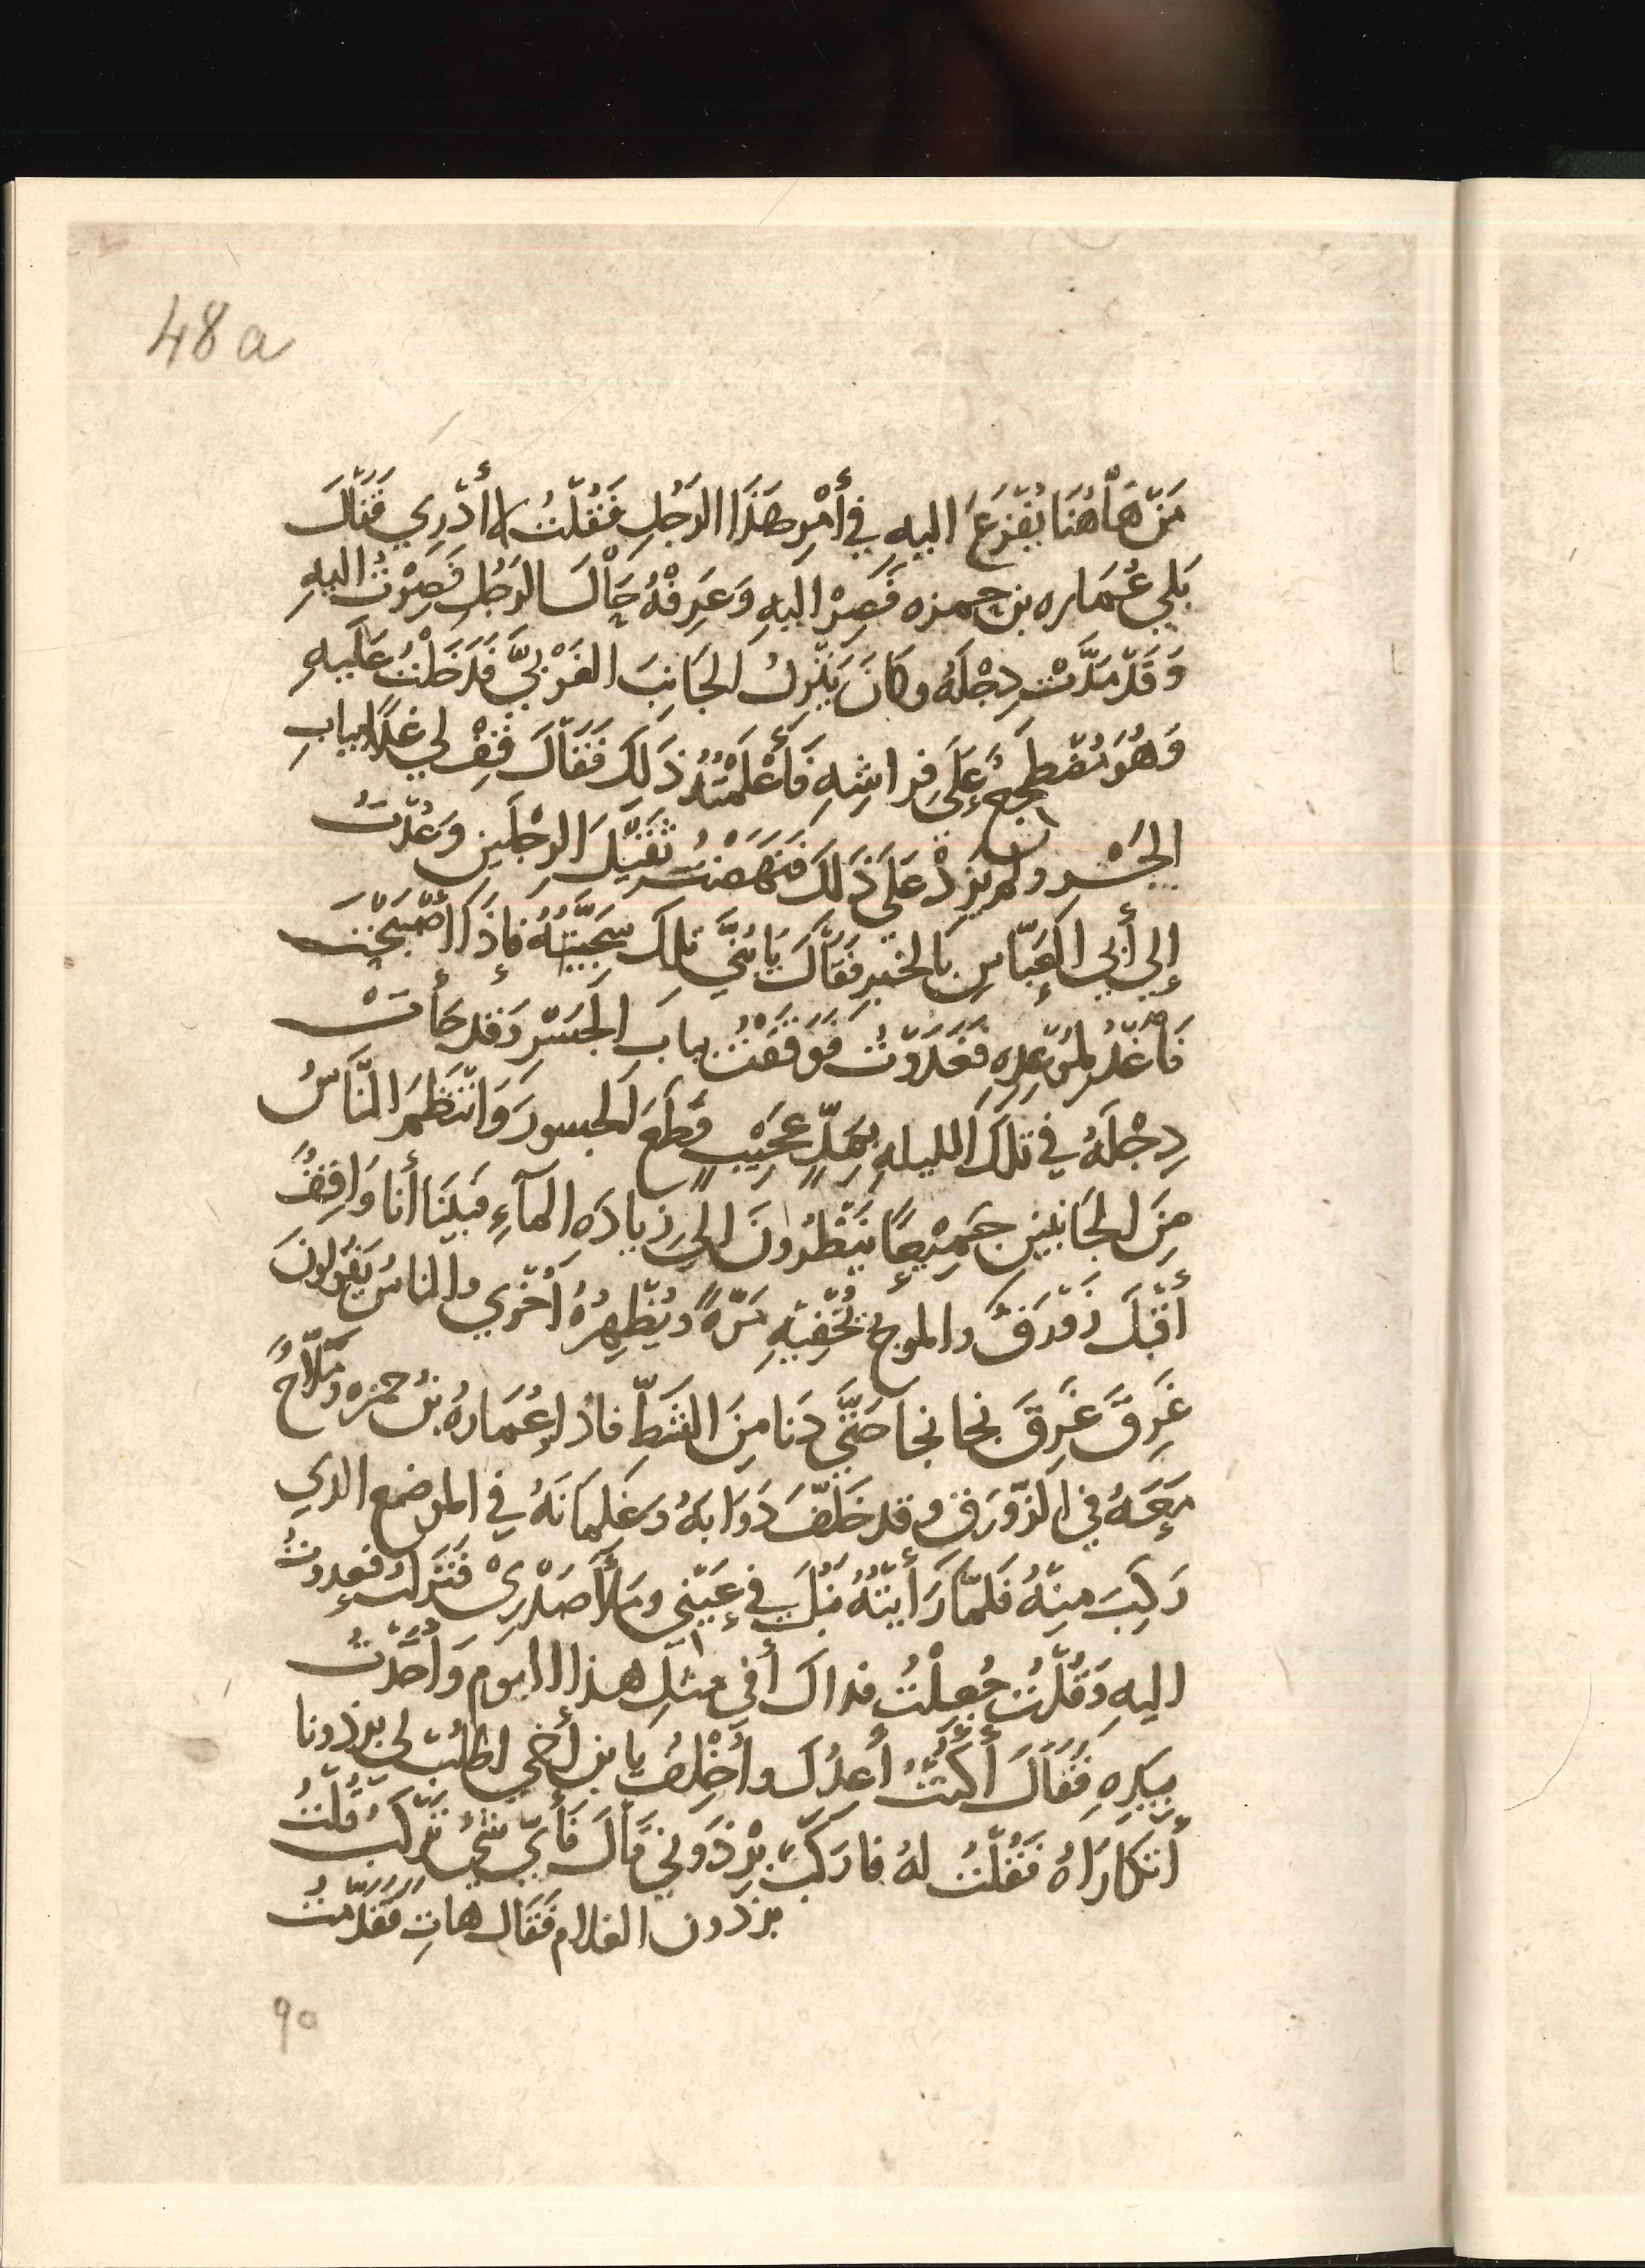 48a
مَنْ هَاهُنَا يُفْزَعُ اليهِ في أَمْرِ هَذَا الرَجُلِ فَقُلْتُ لا أَدْرِي فَقَالَ
بَلي عُمَاره بن حمزه فَصِرْ اليهِ وَعَرِفْهُ حَالَ الرَجُلِ فَصِرْتُ اليهِ
وَقَدْ مَدَّتْ دِجْلَهُ وكَانَ يَنْزِلُ الجَانِبَ الغَرْبيَّ فَدَخَلْتُ عَلَيهِ
وَهُوَ مُضْطَجِعٌ عَلَى فِراشِهِ فَأَعْلَمْتُهُ ذَلِكَ فَقَالَ قِفْ لي غَدًا ببابِ
الجَسْرِ ولم يزِدْ عَلَى ذَلكَ فَنَهَضْتُ ثَقِيلَ الرِجْلَينِ وَعُدْتُ
إِلي أَبي العَبَّاسِ بالخبرِ فقَالَ يَا بُنَيَّ تلكَ سَجِيَّتُهُ فإذَا أَصْبَحْتَ
فَاغْدُ لمَوْعِدِهِ فَغَدَوْتُ فَوَقَفْتُ ببابَ الجَسْرِ وَقد جَأَتْ
دِجْلَهُ في تلكَ الليلهِ بِمَدٍّ عَجِيْبٍ قطَعَ الجسورَ وَانْتَظَمَ النَّاسُ
مِنَ الجَانبينِ جَمِيْعًا يَنْظُرُونَ الى زيادَه الماءِ فَبَيْنَا أَنا وَاقِفٌ
أَقْبَلَ زَوْرَقٌ والموجُ تُخْفِيْهِ مَرّهً ويُظْهِرُهُ أُخْرَي والناسُ يَقُولونَ
غَرِقَ غَرِقَ نجا نجا حَتَّى دَنا مِنَ الشَطِّ فاذا عُمَارهُ بنُ حمزه ومَلَّاحٌ
مَعَهُ في الزَّوْرَقِ وقد خَلَّفَ دَوَابهُ وَغلمانَهُ في الموضع الذي
رَكِبَ مِنْهُ فَلَمَّا رَأَيْتُهُ نَبُلَ في عَيْنِي ومَلأَ صَدْرِي فَنَزلتُ فعدوتُ
اليهِ وَقُلْتُ جُعِلْتُ فداكَ أفي مثلِ هذا اليوم وَأَخَذْتُ
بيَدِهِ فَقَالَ أَكُنْتُ أَعِدُكَ وأُخْلِفُ يا بن أخي اطلُبْ لي برذونا
أَتَكَارَاهُ فَقُلْتُ لهُ فاركَبْ بِرْذَوْنِي قالَ فَأَيَّ شَيْءٍ تَرْكَبُ قُلْتُ
برذون الغلام فَقَالَ هاتِ فقَدَّمْتُ
90